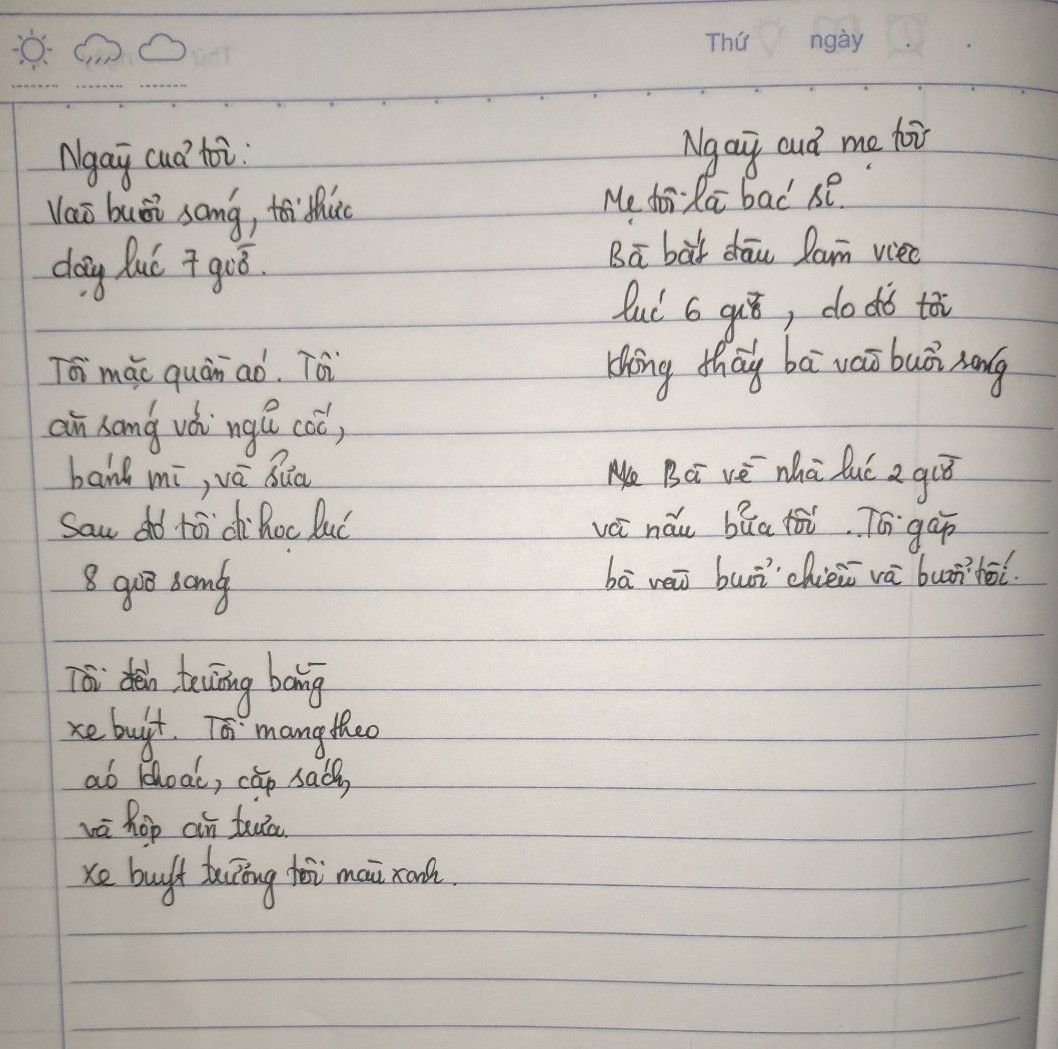 Thứ ngày
Ngày của tôi:
Vào buổi sáng, tôi thức
dậy lúc 7 giờ.
Tôi mặc quần áo. Tôi
ăn sáng với ngũ cốc,
bánh mì, và sữa
Sau đó tôi đi học lúc
8 giờ sáng
Tôi đến trường bằng
xe buýt. Tôi mang theo
áo khoác, cặp sách,
và hộp ăn trưa.
xe buýt trường tôi màu xanh.
Ngày của mẹ tôi
Mẹ tôi là bác sĩ.
Bà bắt đầu làm việc
lúc 6 giờ, do đó tôi
không thấy bà vào buổi sáng
Bà về nhà lúc 2 giờ
và nấu bữa tối. Tôi gặp
bà vào buổi chiều và buổi tối.